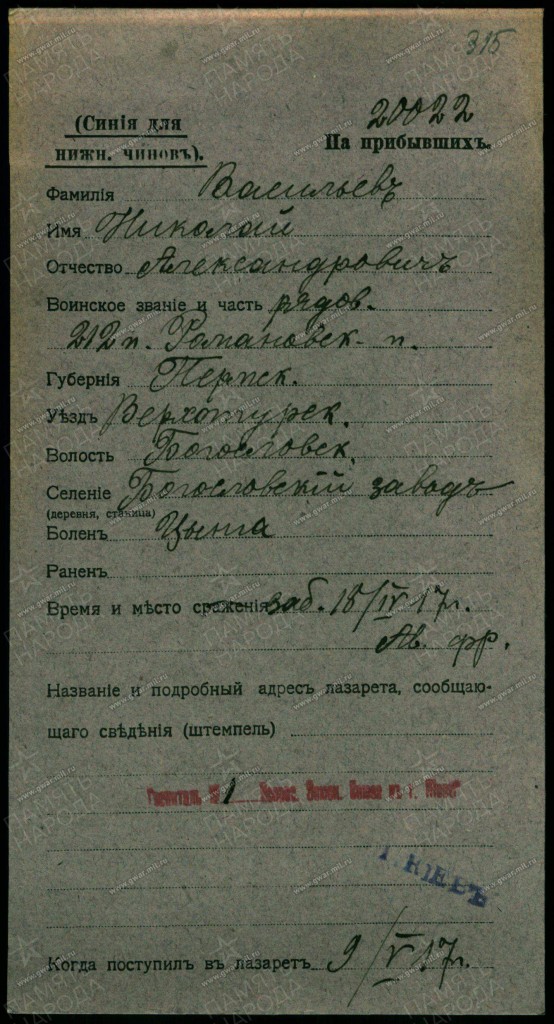 315
20022
(Синія для
нижн. чиновъ).
На прибывшихъ.
Фамилія Васильевъ
Имя Николай
Отчество Александровичъ
Воинское званіе и часть рядов.
212 п. Романовск. п.
Губернія Пермск.
Уѣздъ Верхотурск.
Волость Богословск.
Селеніе Богословскій заводъ
(деревня, станица)
Боленъ Цынга
Раненъ
Время и мѣсто сраженія заб. 15/IV 17 г.
Ав. фр.
Названіе и подробный адресъ лазарета, сообщаю-
щаго свѣдѣнія (штемпель)
Госпиталь № 1 въ г.
г. КІЕВЪ
Когда поступилъ въ лазаретъ 9/V 17 г.
ПАМЯТЬ НАРОДА
www.gwar.mil.ru